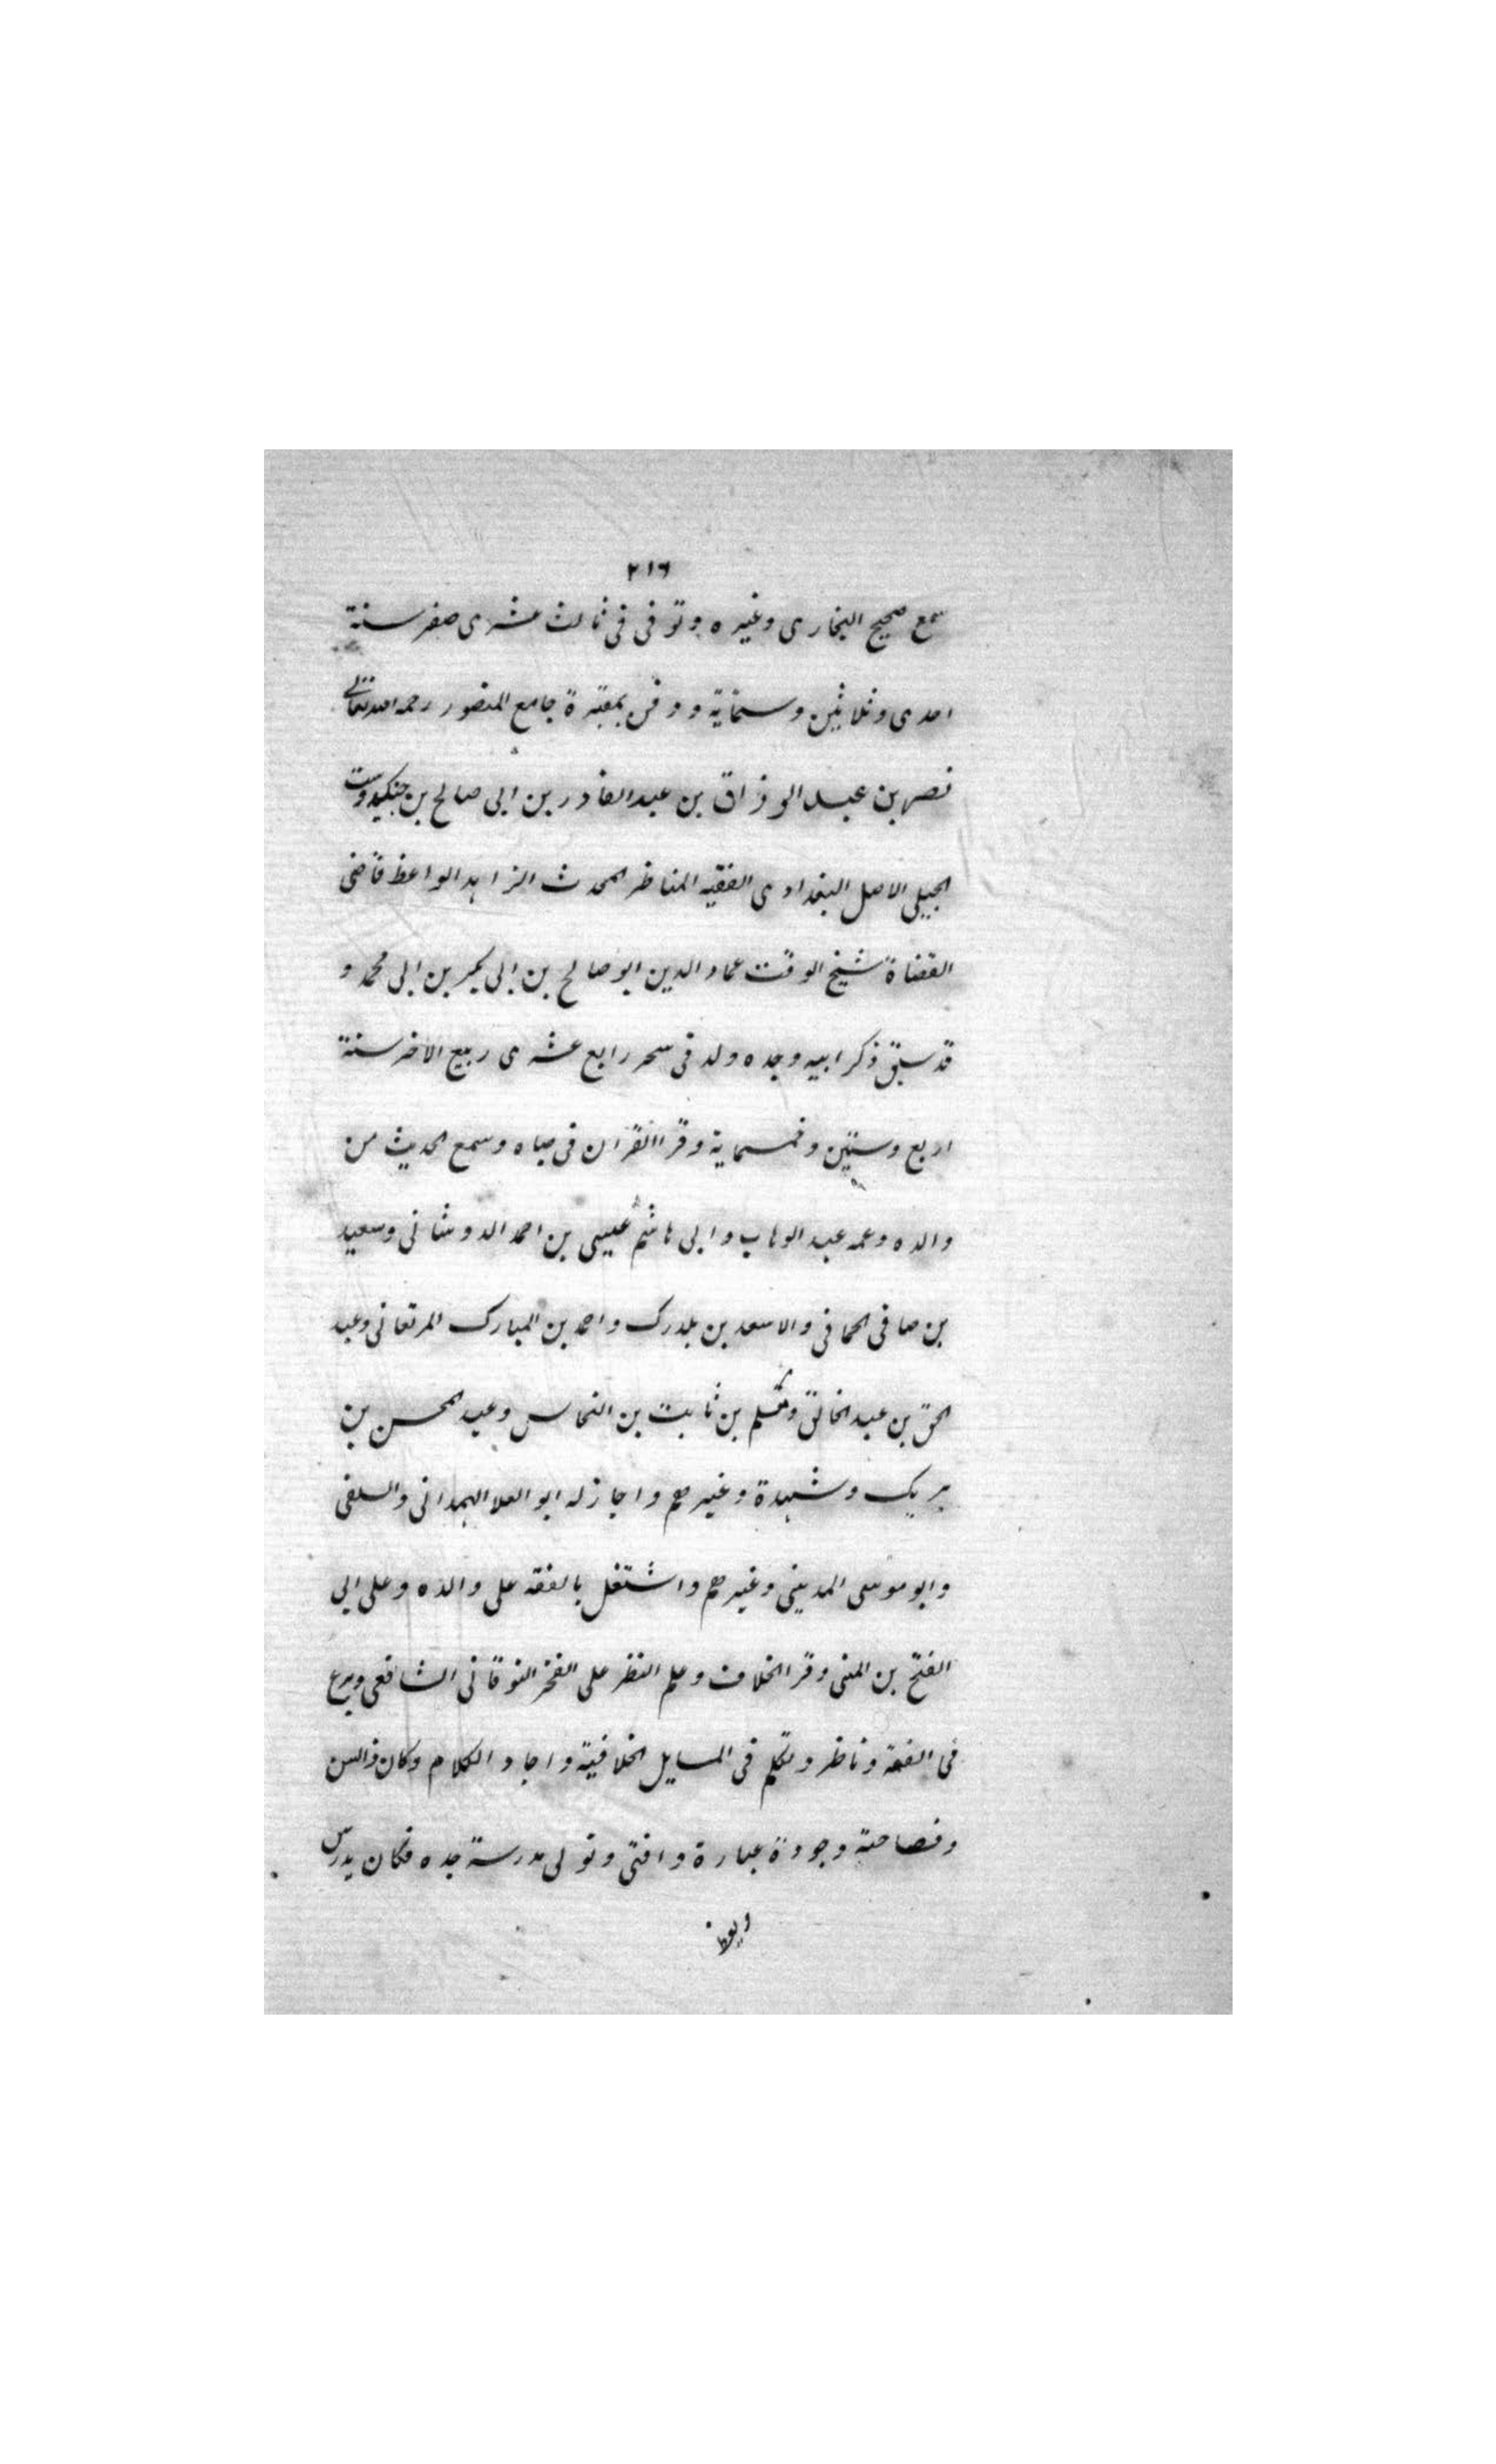 ٢١٦
سمع صحيح البخارى وغيره وتوفى فى ثالث عشرى صفر سنة
احدى وثلاثين وستماية ودفن بمقبرة جامع المنصور رحمه الله تعالى
نصر بن عبد الرزاق بن عبد القادر بن ابى صالح بن جنكيدوست
الجيلى الاصل البغدادى الفقيه المناظر المحدث الزاهد الواعظ قاضى
القضاة شيخ الوقت عماد الدين ابو صالح بن ابى بكر بن ابى محمد و
قد سبق ذكر ابيه وجده ولد فى سحر رابع عشرى ربيع الاخر سنة
اربع وستين وخمسماية وقرا القران فى صباه وسمع الحديث من
والده وعمه عبد الوهاب وابى هاشم عيسى بن احمد الدوشانى وسعيد
بن صافى الحمافى والاسعد بن بلدرك واحمد بن المبارك المرقعانى وعبد
الحق بن عبد الخالق ومسلم بن ثابت بن النحاس وعبد المحسن بن
بريك وشهدة وغيرهم واجاز له ابو العلا الهمدانى والسلفى
وابو موسى المدينى وغيرهم واشتغل بالفقه على والده وعلى ابى
الفتح بن المنى وقرا الخلاف وعلم النظر على الفخر النوقانى الشافعى وبرع
فى الفقه وناظر وتكلم فى المسايل الخلافية واجاد الكلام وكان ذا لسن
وفصاحة وجودة عبارة وافتى وتولى مدرسة جده فكان يدرس
ويعظ